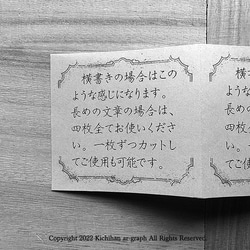 横書きの場合はこの
ような感じになります。
長めの文章の場合は、
四枚全てお使いくださ
い。一枚ずつカットし
てご使用も可能です。
横書き
ような
長めの
四枚全
い。一
てご使
Copyright 2022 Kichihan ar-graph All Rights Reserved.